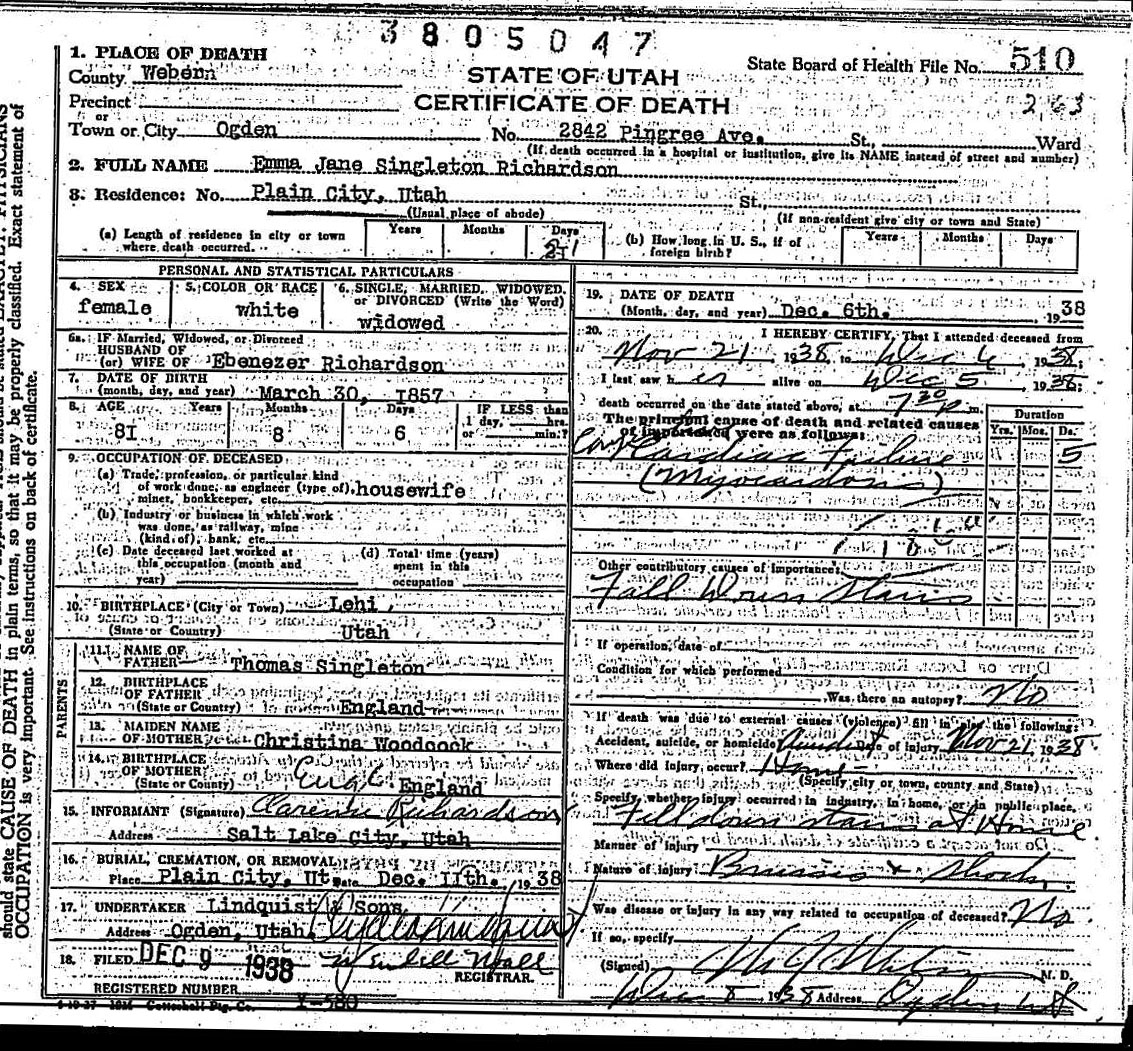 3805047
1. PLACE OF DEATH
County Weberm
STATE OF UTAH
State Board of Health File No. 510
263
Precinct
or
CERTIFICATE OF DEATH
Town or City Ogden No. 2842 Pingree Ave. St., Ward
(If death occurred in a hospital or institution, give its NAME instead of street and number)
2. FULL NAME Emma Jane Singleton Richardson
3. Residence: No. Plain City, Utah St.,
(Usual place of abode)
(If non-resident give city or town and State)
(a) Length of residence in city or town where death occurred.
Years Months Days
21
(b) How long in U. S., if of foreign birth?
Years Months Days
PERSONAL AND STATISTICAL PARTICULARS
4. SEX
female
5. COLOR OR RACE
white
6. SINGLE, MARRIED, WIDOWED, or DIVORCED (Write the Word)
widowed
6a. IF Married, Widowed, or Divorced
HUSBAND OF
(or) WIFE OF Ebenezer Richardson
7. DATE OF BIRTH
(month, day, and year) March 30, 1857
8. AGE Years Months Days
81 8 6
IF LESS than
1 day, hrs.
or min.?
9. OCCUPATION OF DECEASED
(a) Trade, profession, or particular kind
of work done, as engineer (type of), housewife
miner, bookkeeper, etc.
(b) Industry or business in which work
was done, as railway, mine
(kind of), bank, etc.
(c) Date deceased last worked at
this occupation (month and
year)
(d) Total time (years)
spent in this
occupation
10. BIRTHPLACE (City or Town) Lehi,
(State or Country) Utah
PARENTS
11. NAME OF
FATHER Thomas Singleton
12. BIRTHPLACE
OF FATHER
(State or Country) England
13. MAIDEN NAME
OF MOTHER Christina Woodcock
14. BIRTHPLACE
OF MOTHER
(State or County) England
15. INFORMANT (Signature) Clarence Richardson
Address Salt Lake City, Utah
16. BURIAL, CREMATION, OR REMOVAL
Place Plain City, Ut. Date Dec. 11th. 1938
17. UNDERTAKER Lindquist & Sons
Address Ogden, Utah.
18. FILED DEC 9 1938
REGISTRAR.
REGISTERED NUMBER Y-580
19. DATE OF DEATH
(Month, day, and year) Dec. 6th. 1938
20. I HEREBY CERTIFY, That I attended deceased from
Nov 21, 1938, to Dec 6, 1938;
I last saw her alive on Dec 5, 1938;
death occurred on the date stated above, at 7 30 p m.
The principal cause of death and related causes
of importance were as follows:
Duration
Yrs. Mos. Ds.
Cardiac Failure 5
(Myocardosis)
Other contributory causes of importance:
Fall Down Stairs
If operation, date of
Condition for which performed
Was there an autopsy? No
If death was due to external causes (violence) fill in also the following:
Accident, suicide, or homicide Accident Date of injury Nov 21, 1938
Where did injury occur? Home
(Specify city or town, county and State)
Specify whether injury occurred in industry, in home, or in public place.
Fell down stairs at Home
Manner of injury
Nature of injury Bruises & Shock
Was disease or injury in any way related to occupation of deceased? No
If so, specify
(Signed) M. D.
Dec 8 1938 Address Ogden, Ut
should state CAUSE OF DEATH in plain terms, so that it may be properly classified. Exact statement of
OCCUPATION is very important. See instructions on back of certificate.